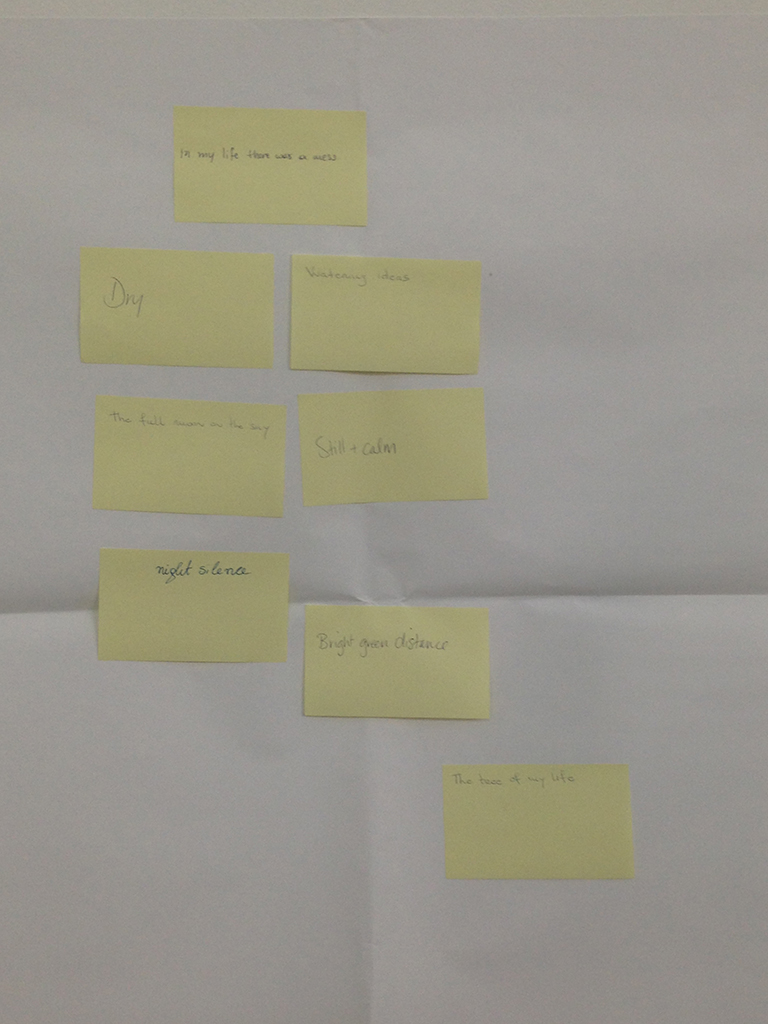 In my life there was a mess
Dry
Watering ideas
The full moon on the sky
Still + calm
night silence
Bright green distance
The tree of my life